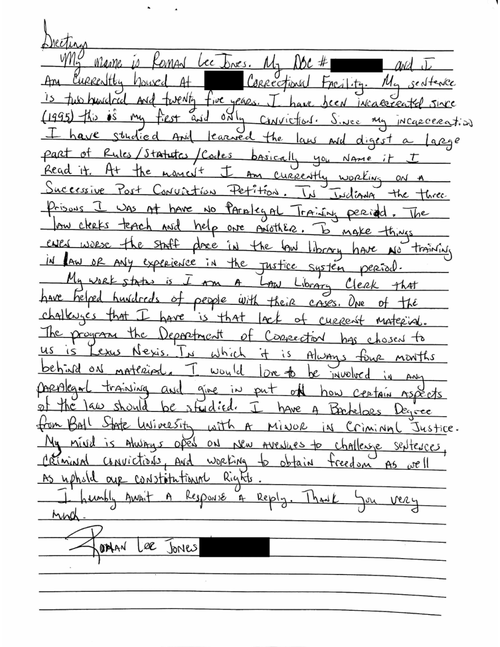 Greetings
My name is Roman Lee Jones. My DOC # and I
Am Currently housed At Correctional Facility. My sentence
is two hundred And twenty five years. I have been incarcerated since
(1995) this is my first and only conviction. Since my incarceration
I have studied And learned the law and digest a large
part of Rules/Statutes/Codes basically you Name it I
Read it. At the moment I am currently working on a
Successive Post Conviction Petition. In Indiana the three
prisons I was at have no Paralegal Training period. The
law clerks teach and help one another. To make things
even worse the staff place in the law library have no training
in law or any experience in the justice system period.
My work status is I am a Law Library Clerk that
have helped hundreds of people with their cases. One of the
challenges that I have is that lack of current material.
The program the Department of Correction has chosen to
us is Lexus Nexis. In which it is Always four months
behind on material. I would love to be involved in any
paralegal training and give in put on how certain aspects
of the law should be studied. I have a Bachelors Degree
from Ball State University with a Minor in Criminal Justice.
My mind is always open on new avenues to challenge sentences,
criminal convictions, and working to obtain freedom as well
as uphold our constitutional Rights.
I humbly Await A Response & Reply. Thank you very
much.
Roman Lee Jones